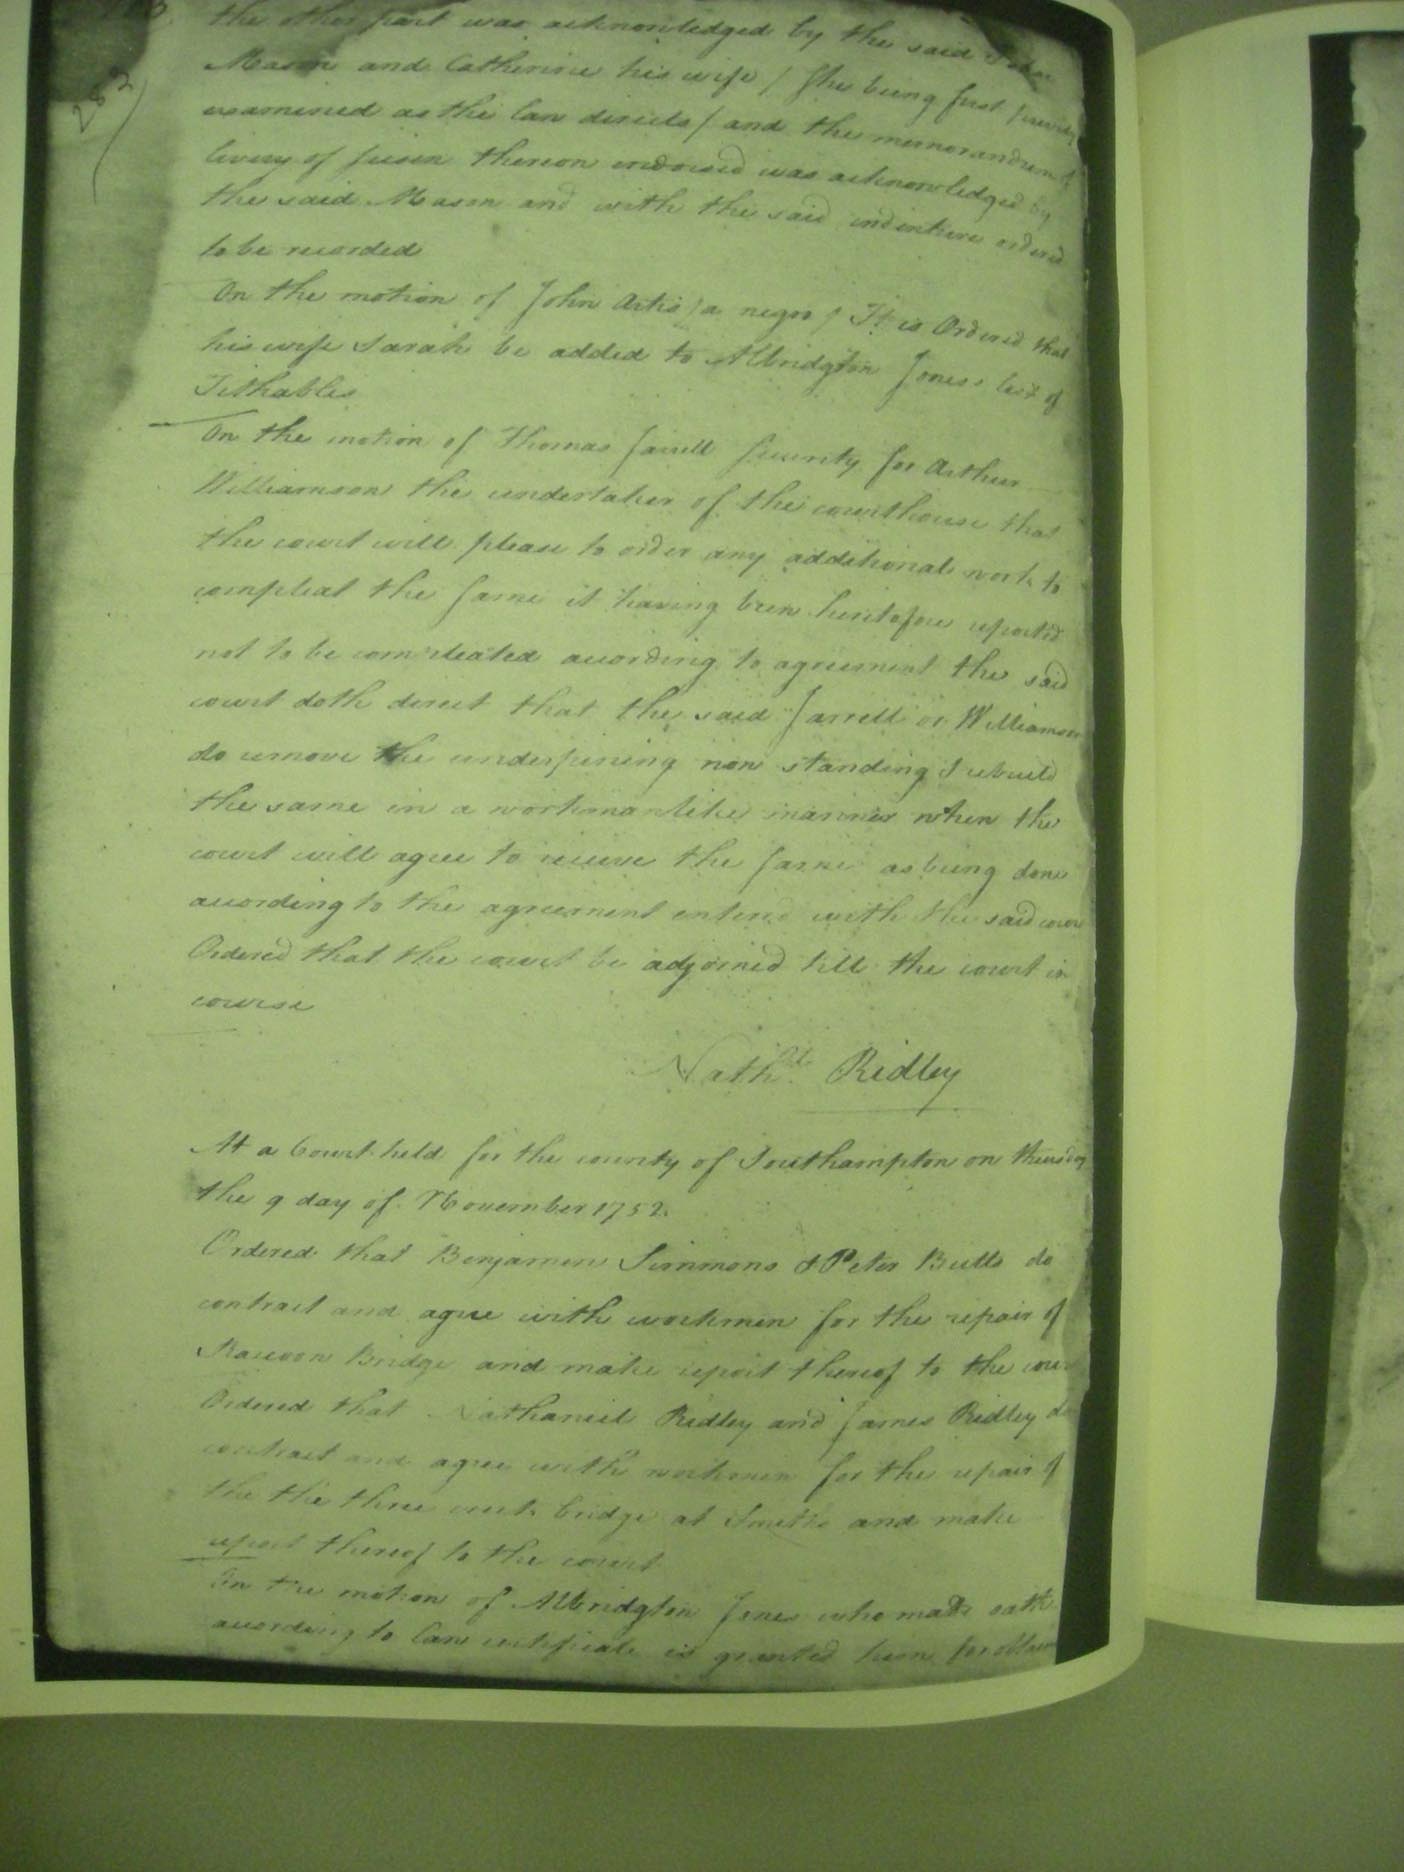 283
the other part was acknowledged by the said
Mason and Catherine his wife / She being first privily
examined as the Law directs / and the memorandum of
livery of seisin thereon endorsed was acknowledged by
the said Mason and with the said indenture ordered
to be recorded
On the motion of John Artis / a negro / It is Ordered that
his wife Sarah be added to Albridgton Jones's list of
Tithables
On the motion of Thomas Jarrell Security for Arthur
Williamson the undertaker of the courthouse that
the court will please to order any additional work to
compleat the same it having been heretofore reported
not to be compleated according to agreement the said
court doth direct that the said Jarrell or Williamson
do remove the underpining now standing & rebuild
the same in a workmanlike manner when the
court will agree to receive the same as being done
according to the agreement entered with the said court
Ordered that the court be adjorned till the court in
course
Nathll. Ridley
At a Court held for the county of Southampton on thursday
the 9 day of November 1752.
Ordered that Benjamin Simmons & Peter Butts do
contract and agree with workmen for the repair of
Racoon Bridge and make report thereof to the cour
Ordered that Nathaniel Ridley and James Ridley do
contract and agree with workmen for the repair of
the the three creek bridge at Smiths and make
report thereof to the court
On the motion of Albridgton Jones who made oath
according to Law certificate is granted him for obtain